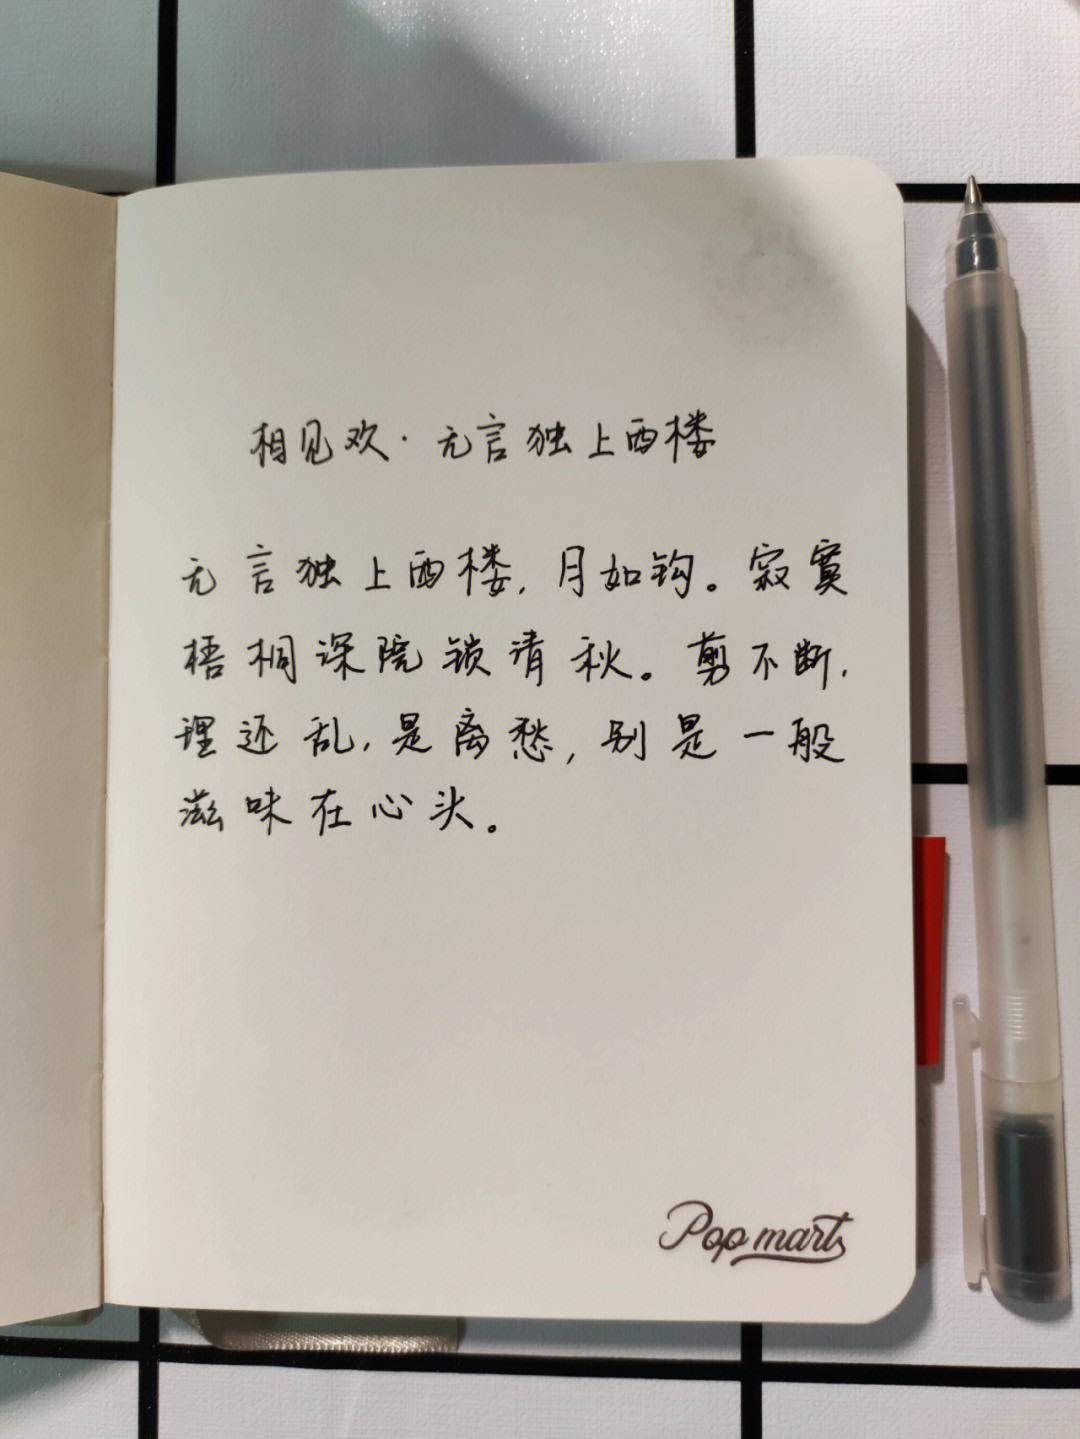 相见欢·无言独上西楼
无言独上西楼,月如钩。寂寞
梧桐深院锁清秋。剪不断,
理还乱,是离愁,别是一般
滋味在心头。
Pop mart